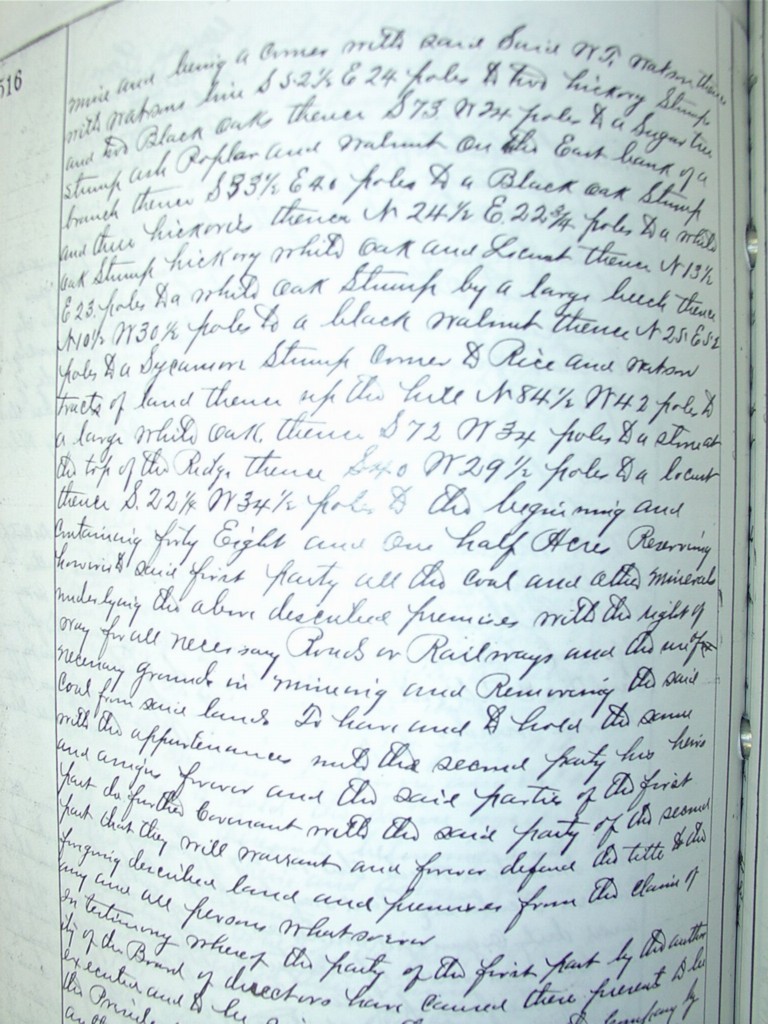 516
mine and being a corner with said Suid W.T. Watson thence
with Watsons line S 52½ E 24 poles to two hickory Stump
and two Black Oaks thence S 73 W 24 poles to a Sugar tree
stump ash Poplar and walnut on the East bank of a
branch thence S 33½ E 40 poles to a Black oak Stump
and three hickories thence N 24½ E 22¾ poles to a white
oak Stump hickory white oak and Locust thence N 13½
E 23 poles to a white oak Stump by a large beech thence
N 10½ W 30½ poles to a black walnut thence N 25 E 52
poles to a Sycamore Stump Corner to Rice and Watson
tracts of land thence up the hill N 84½ W 42 poles to
a large white oak, thence S 72 W 34 poles to a stone at
the top of the Ridge thence S 40 W 29½ poles to a locust
thence S. 22½ W 34½ poles to the beginning and
Containing forty Eight and One half Acres Reserving
however to said first party all the coal and other minerals
underlying the above described premises with the right of
way for all necessary Roads or Railways and the use of
necessary grounds in mining and Removing the said
coal from said lands To have and to hold the same
with the appurtenances unto the second party his heirs
and assigns forever and the said parties of the first
part do further Covenant with the said party of the second
part that they will warrant and forever defend the title to the
foregoing described land and premises from the claim of
any and all persons whatsoever
In testimony whereof the party of the first part by the author
ity of the Board of directors have caused these presents to be
executed and to be
the Company by